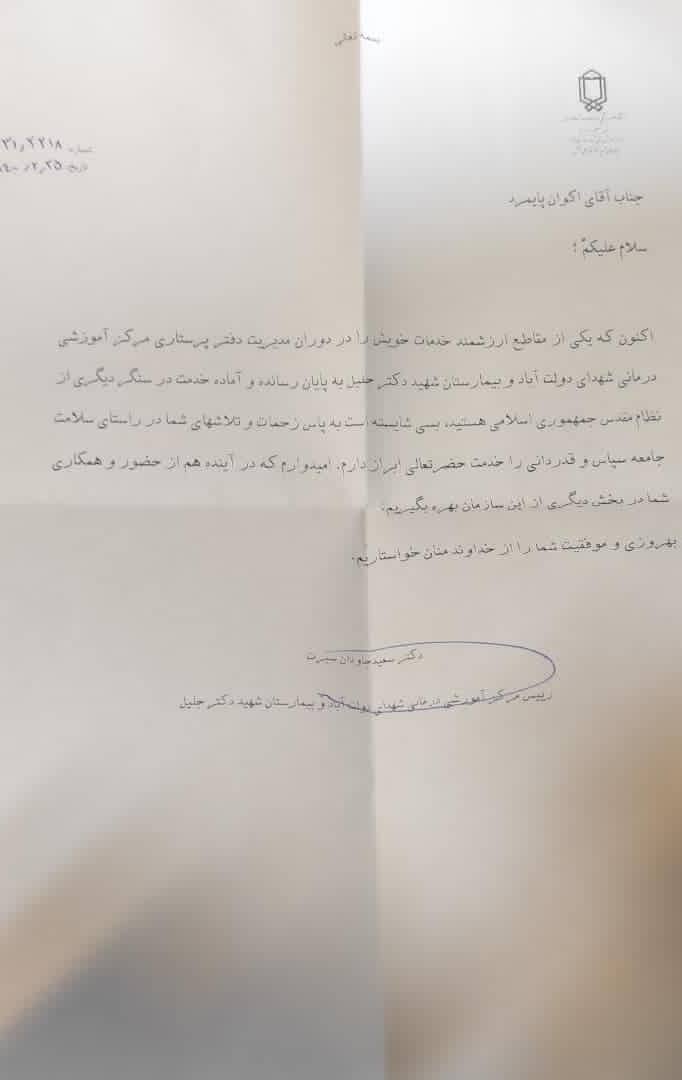 بسمه تعالی
شماره
تاریخ
جناب آقای اکوان پایمرد
سلام علیکم ؛
اکنون که یکی از مقاطع ارزشمند خدمات خویش را در دوران مدیریت دفتر پرستاری مرکز آموزشی
درمانی شهدای دولت آباد و بیمارستان شهید دکتر جلیل به پایان رسانده و آماده خدمت در سنگر دیگری از
نظام مقدس جمهوری اسلامی هستید، بسی شایسته است به پاس زحمات و تلاشهای شما در راستای سلامت
جامعه سپاس و قدردانی را خدمت حضرتعالی ابراز دارم. امیدوارم که در آینده هم از حضور و همکاری
شما در بخش دیگری از این سازمان بهره بگیریم.
بهروزی و موفقیت شما را از خداوند منان خواستاریم.
دکتر سعید جاودان سیرت
رییس مرکز آموزشی درمانی شهدای دولت آباد و بیمارستان شهید دکتر جلیل